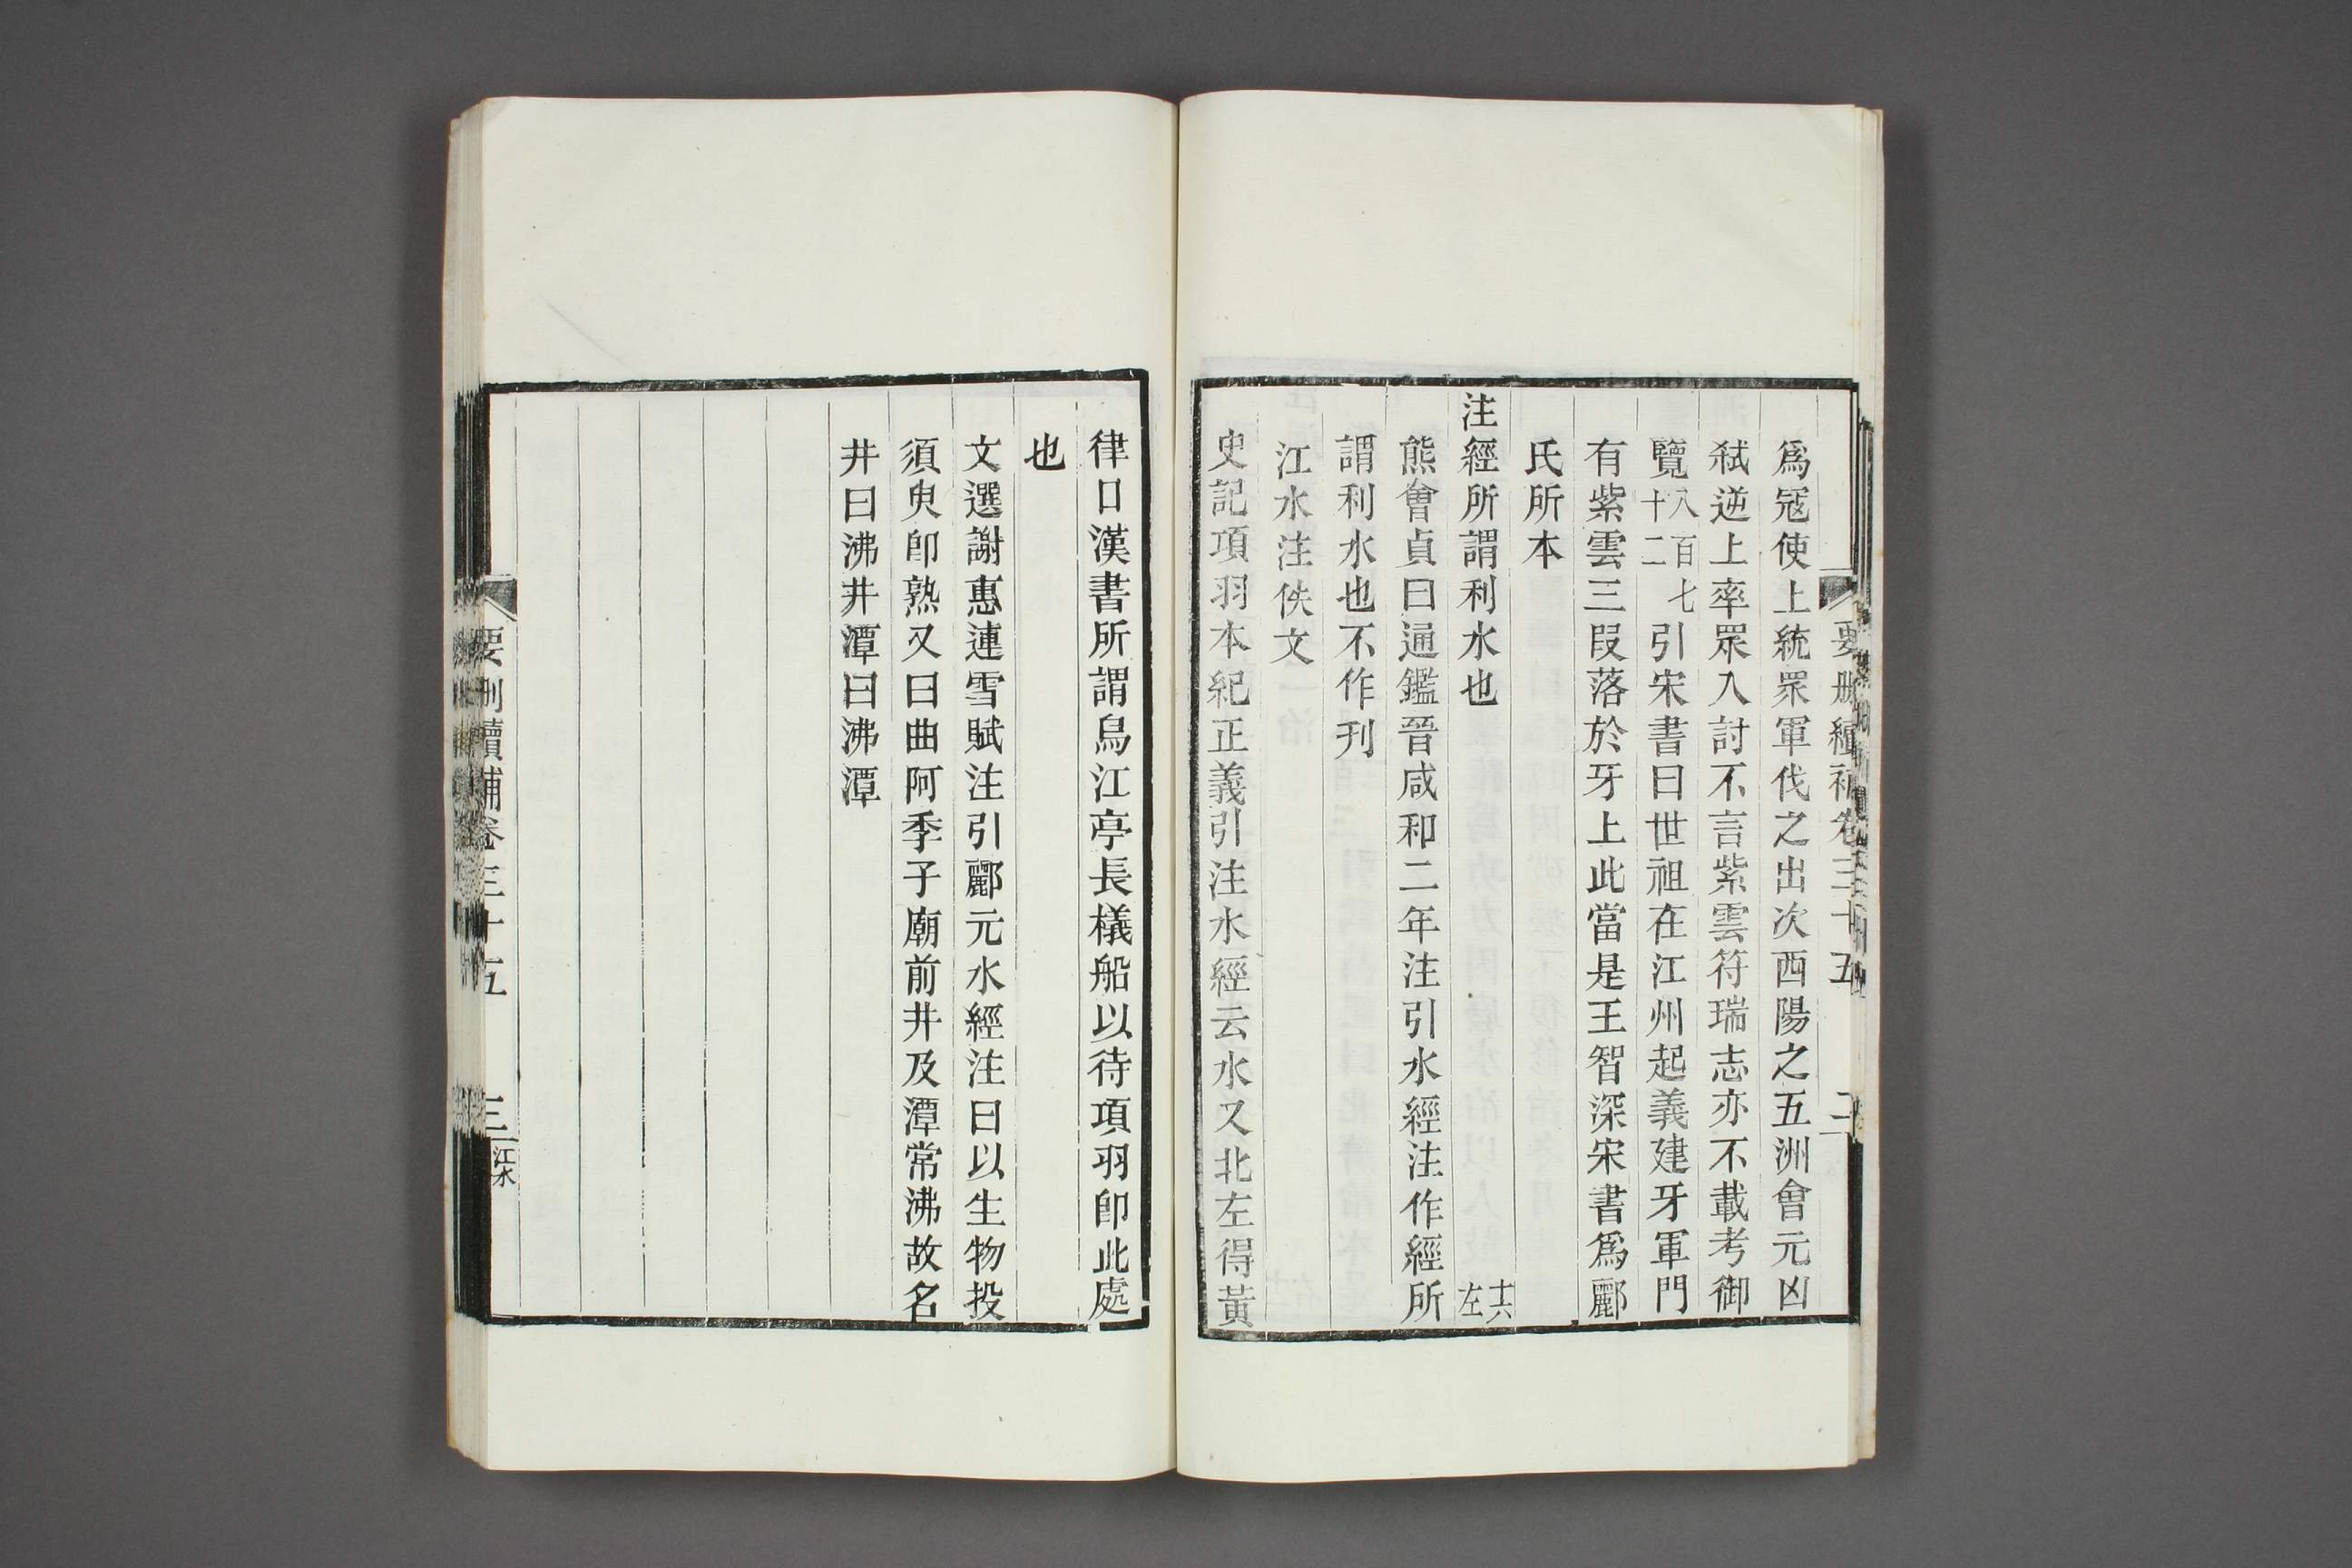 要刪續補卷三十五 二
爲寇使上統衆軍伐之出次西陽之五洲會元凶
弑逆上率眾入討不言紫雲符瑞志亦不載考御
覽八百七十二引宋書曰世祖在江州起義建牙軍門
有紫雲三段落於牙上此當是王智深宋書爲酈
氏所本
注經所謂利水也 十六左
熊會貞曰通鑑晉咸和二年注引水經注作經所
謂利水也不作刊
江水注佚文
史記項羽本紀正義引注水經云水又北左得黃
律口漢書所謂烏江亭長檥船以待項羽卽此處
也
文選謝惠連雪賦注引酈元水經注曰以生物投
須臾卽熟又曰曲阿季子廟前井及潭常沸故名
井曰沸井潭曰沸潭
要刪續補卷三十五 三 江水